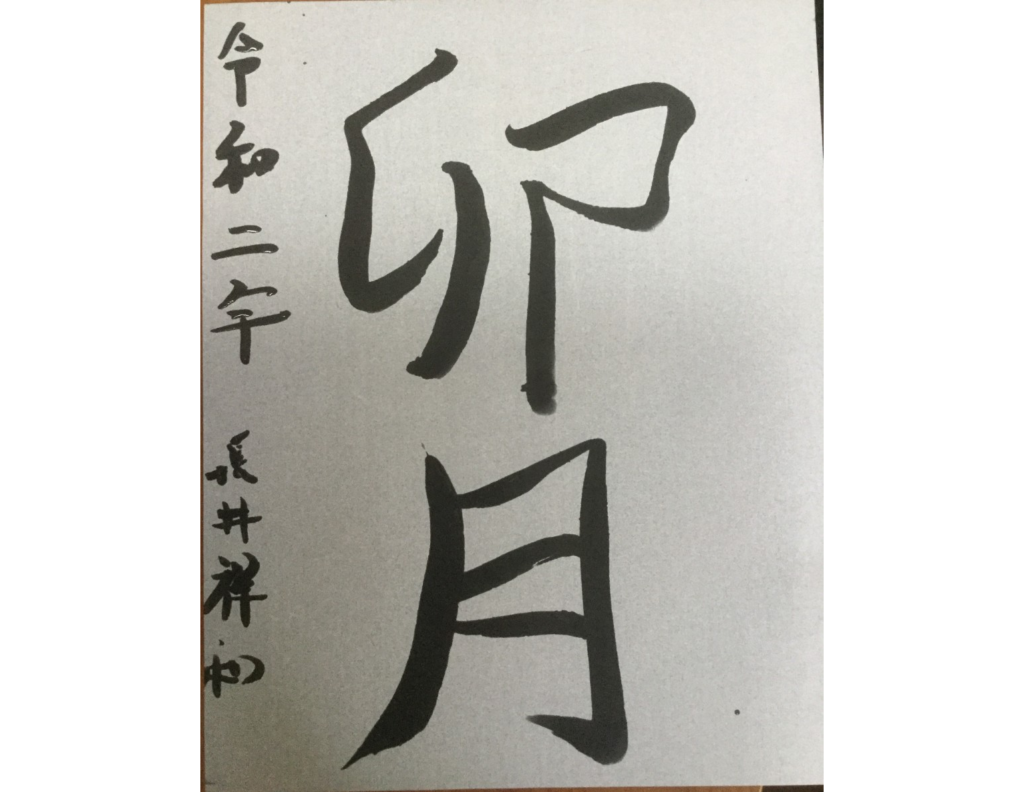 卯月
令和二年 長井祥和